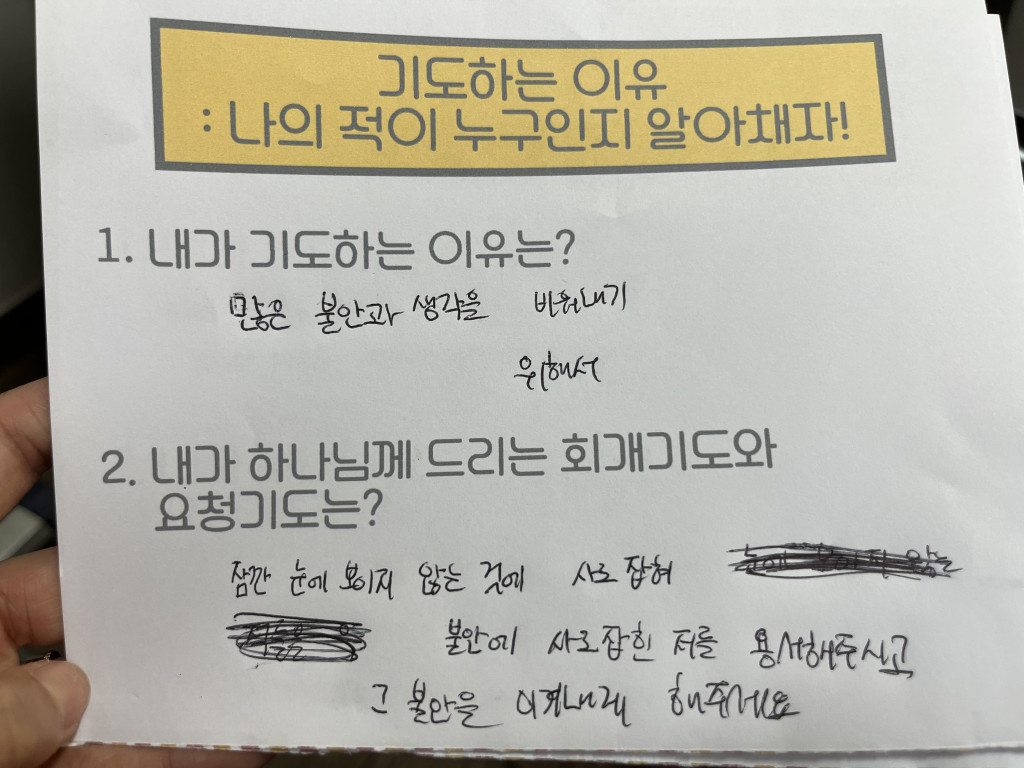 기도하는 이유
: 나의 적이 누구인지 알아채자!
1. 내가 기도하는 이유는?
많은 불안과 생각을 비워내기
위해서
2. 내가 하나님께 드리는 회개기도와
요청기도는?
잠깐 눈에 보이지 않는 것에 사로잡혀
불안에 사로잡힌 저를 용서해주시고
그 불안을 이겨내게 해주세요